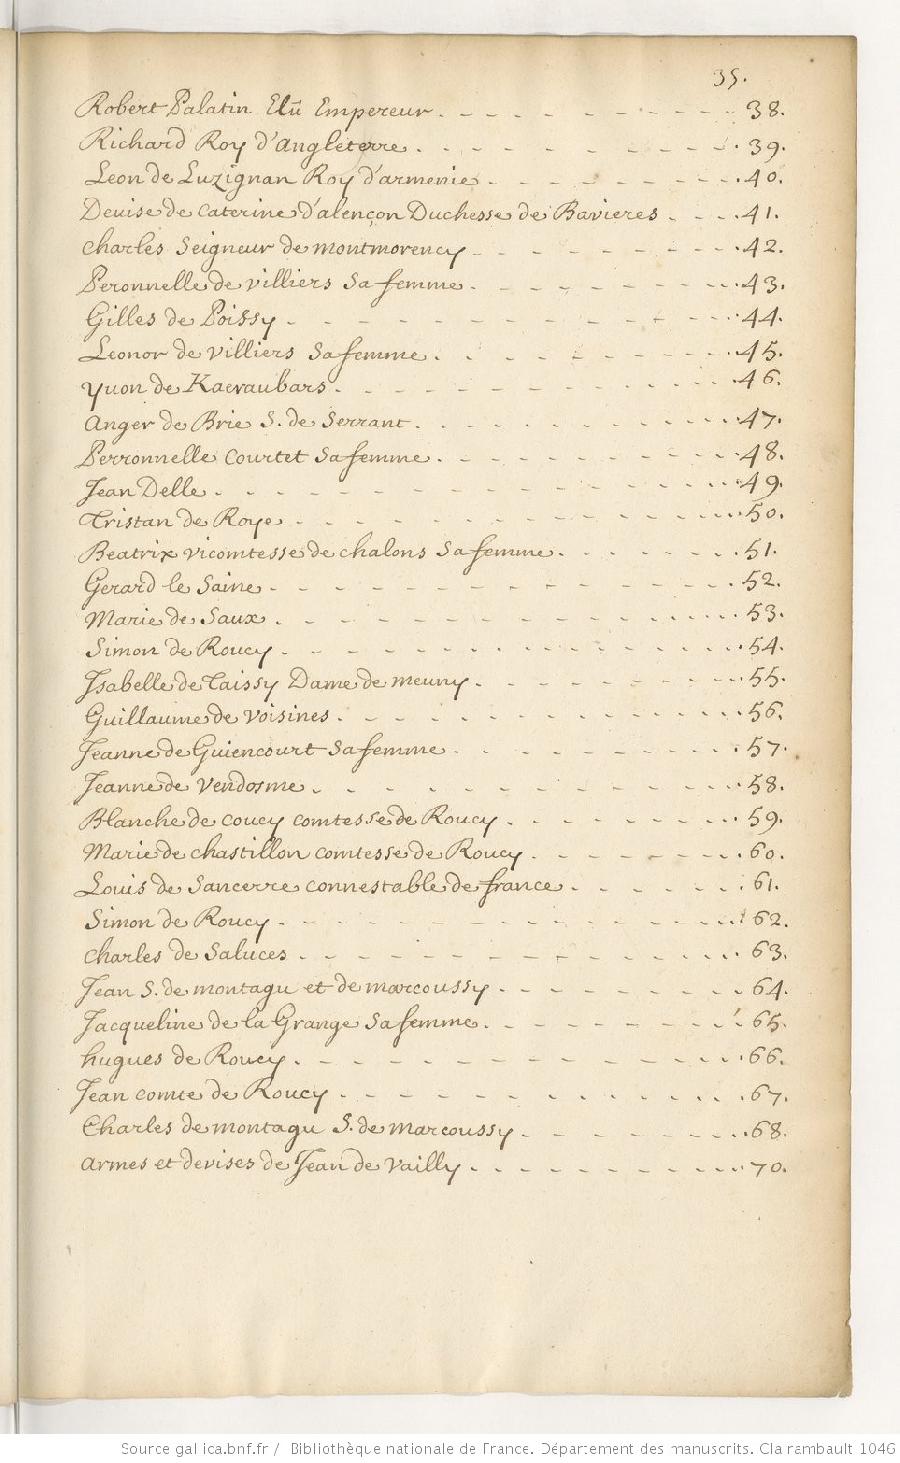 35.
Robert Palatin Elû Empereur. 38.
Richard Roy d'Angleterre. 39.
Leon de Luzignan Roy d'armenie 40.
Deuise de Caterine d'alençon Duchesse de Bavieres 41.
Charles Seigneur de montmorency 42.
Peronnelle de villiers sa femme. 43.
Gilles de Poissy. 44.
Leonor de villiers sa femme. 45.
yuon de Kaeraubars. 46.
Anger de Brie S. de Serrant. 47.
Perronnelle Courtet sa femme. 48.
Jean Delle. 49.
Tristan de Roye. 50.
Beatrix vicomtesse de chalons sa femme. 51.
Gerard le Saine. 52.
Marie de Saux. 53.
Simon de Roucy. 54.
Isabelle de Taissy Dame de meuny. 55.
Guillaume de voisines. 56.
Jeanne de Guiencourt sa femme. 57.
Jeanne de Vendosme. 58.
Blanche de coucy comtesse de Roucy. 59.
Marie de chastillon comtesse de Roucy. 60.
Louis de Sancerre connestable de france. 61.
Simon de Roucy. 62.
Charles de Saluces 63.
Jean S. de montagu et de marcoussy. 64.
Jacqueline de la Grange sa femme. 65.
hugues de Roucy. 66.
Jean comte de Roucy. 67.
Charles de montagu S. de Marcoussy. 68.
Armes et devises de Jean de Vailly. 70.
Source gallica.bnf.fr / Bibliothèque nationale de France. Département des manuscrits. Clairambault 1046